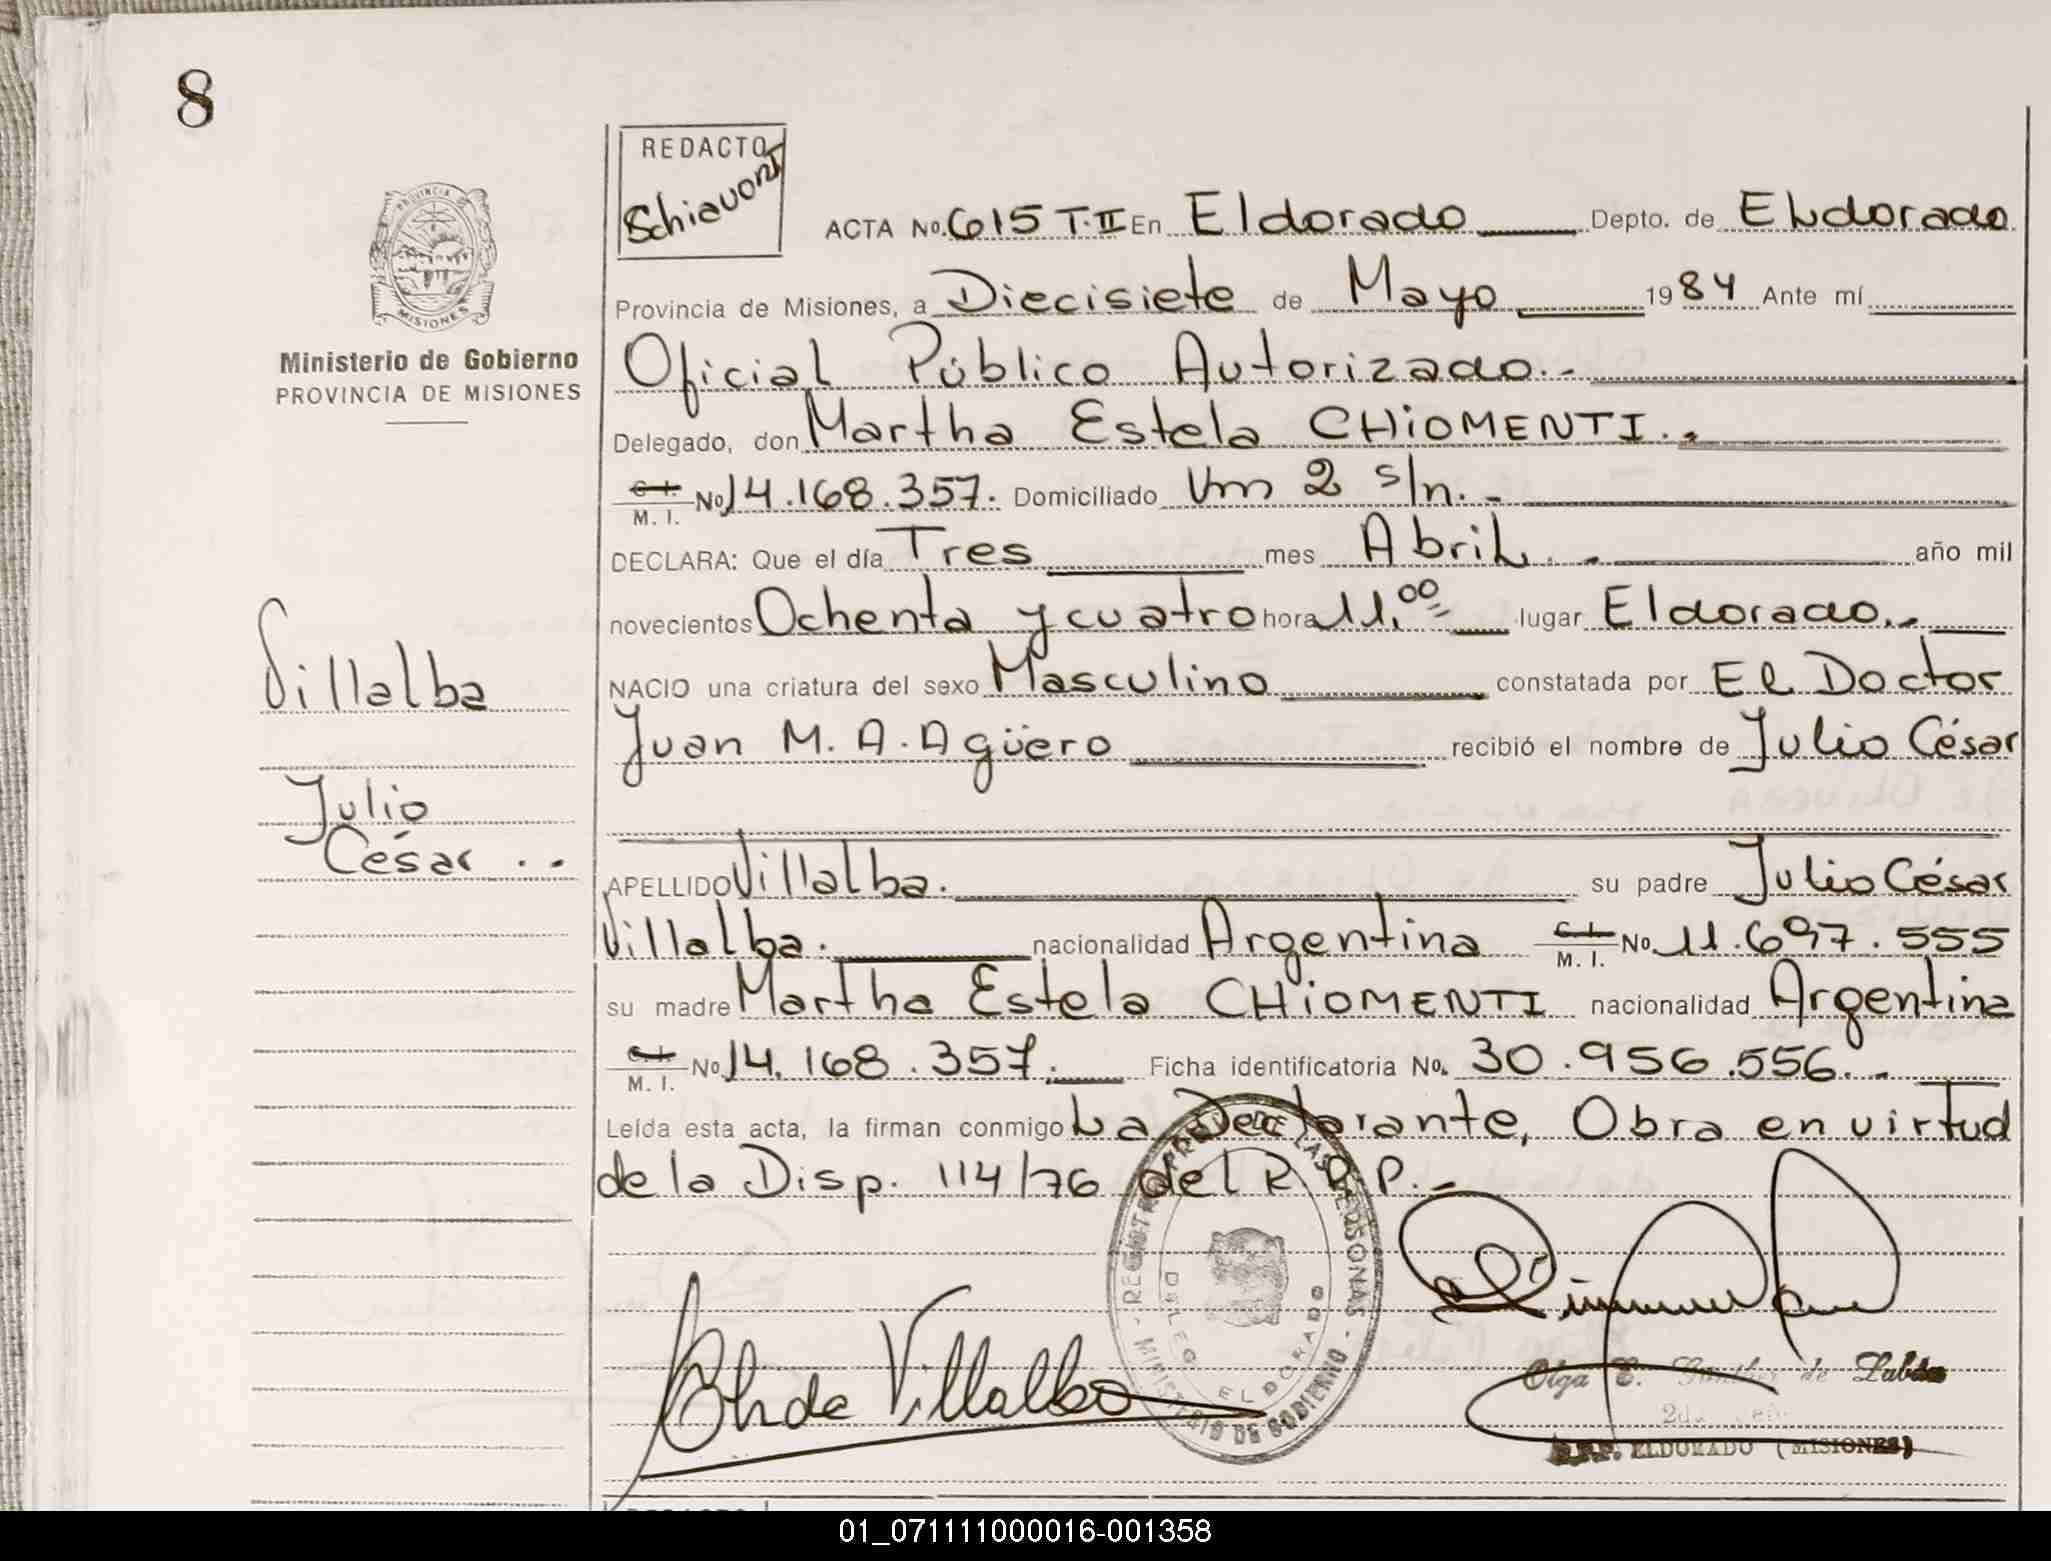 8
REDACTO
Schiavoni
PROVINCIA DE
MISIONES
Ministerio de Gobierno
PROVINCIA DE MISIONES
ACTA No. 615 T.II En Eldorado Depto. de Eldorado
Provincia de Misiones, a Diecisiete de Mayo 1984 Ante mí
Oficial Público Autorizado.-
Delegado, don Martha Estela CHiOMENTI.-
C.I. M. I. No 14.168.357. Domiciliado Vm 2 s/n.-
DECLARA: Que el día Tres mes Abril.- año mil
novecientos Ochenta y cuatro hora 11.00 lugar Eldorado.-
NACIO una criatura del sexo Masculino constatada por El Doctor
Juan M. A. Agüero recibió el nombre de Julio César
Villalba
Julio
César ..
APELLIDO Villalba. su padre Julio César
Villalba. nacionalidad Argentina C.I. M. I. No. 11.697.555
su madre Martha Estela CHiOMENTI nacionalidad Argentina
C.I. M. I. No 14.168.357. Ficha identificatoria No. 30.956.556.-
Leída esta acta, la firman conmigo La Declarante, Obra en virtud
de la Disp. 114/76 del R. P. P.-
REGISTRO DE LAS PERSONAS - MINISTERIO DE GOBIERNO -
DELEG ELDORADO
Villalba
Olga E. de
ELDORADO (MISIONES)
01_071111000016-001358